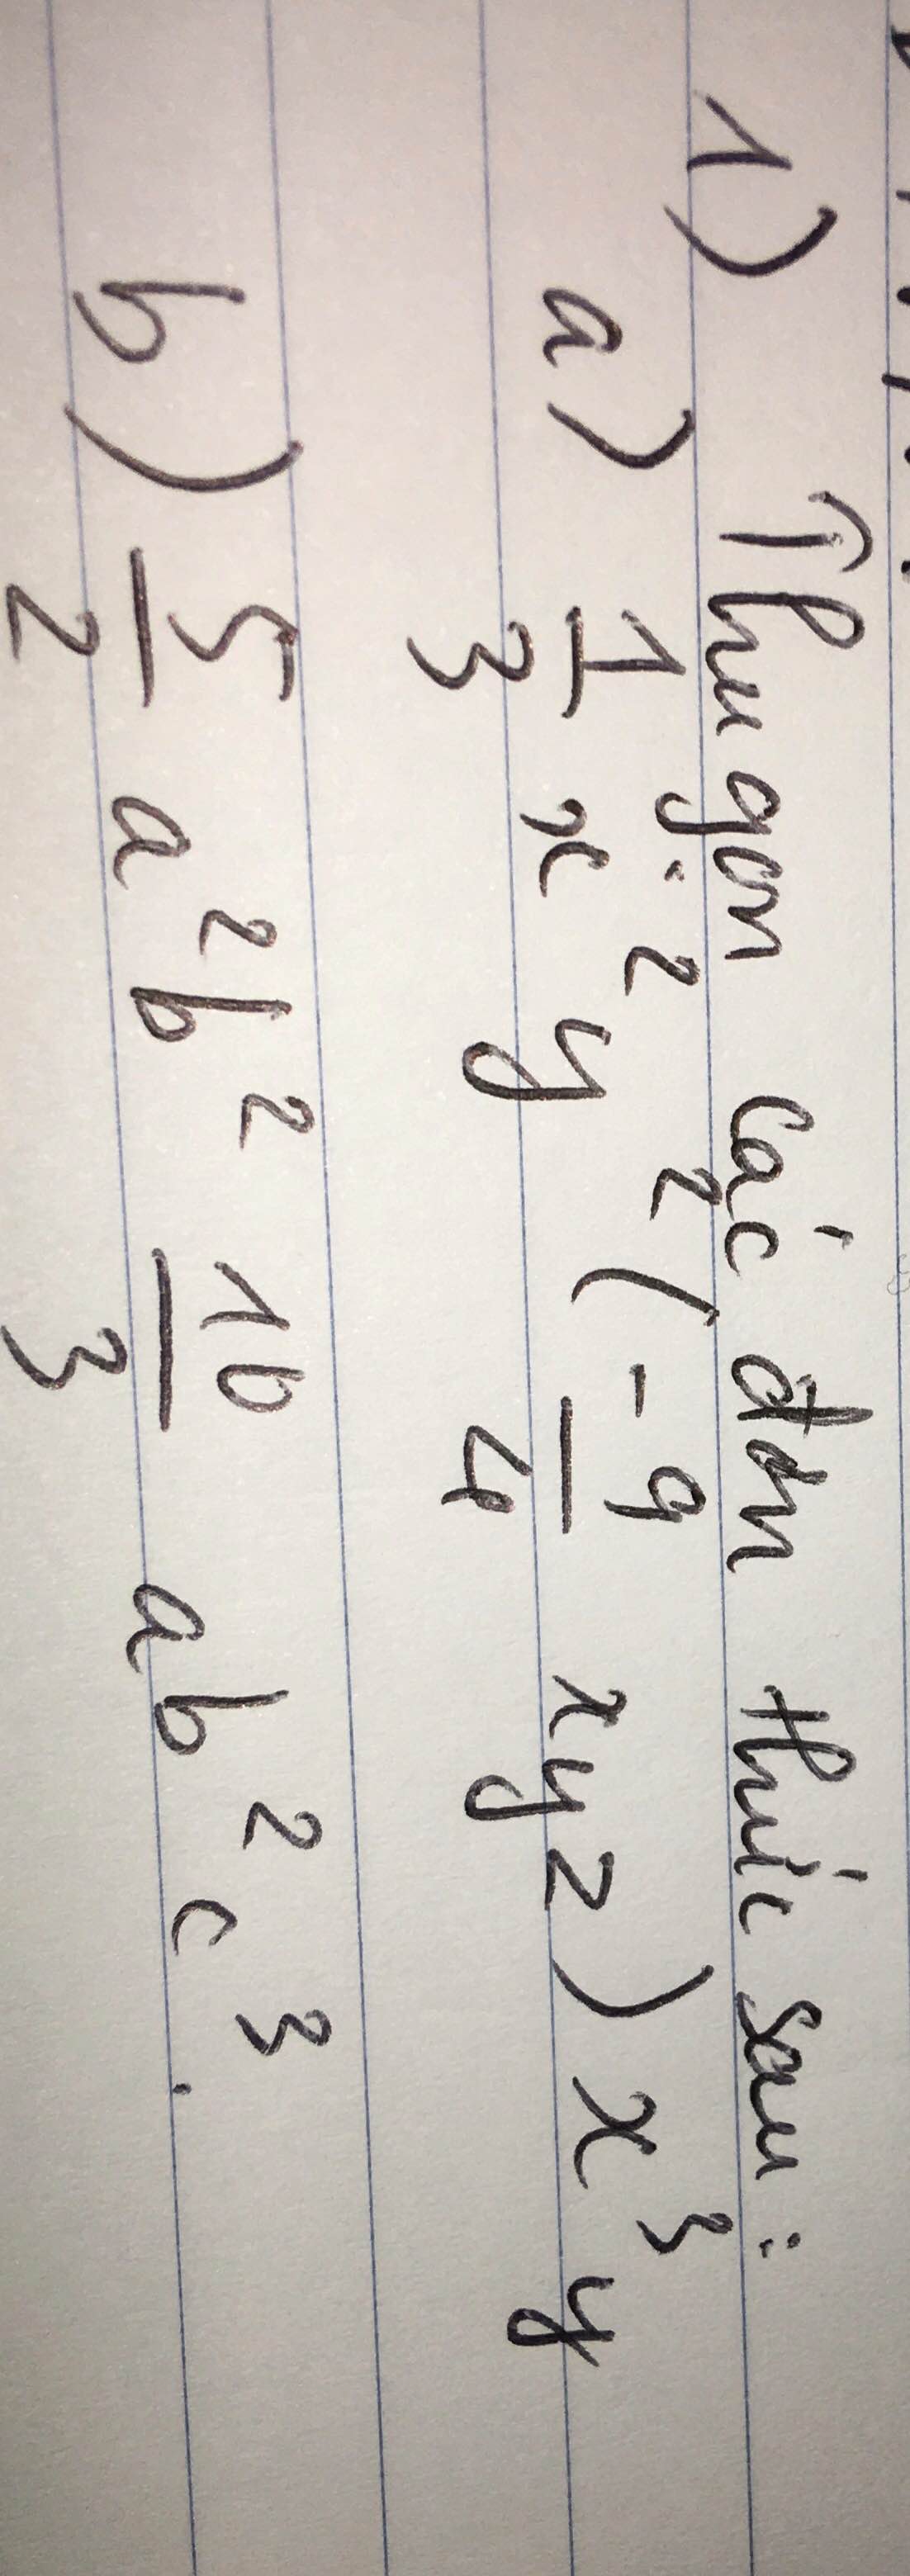 1) Thu gọn các đơn thức sau:
a) 1/3 x²y² (-9/4 xyz) x³y
b) 5/2 a²b² 10/3 ab²c³.